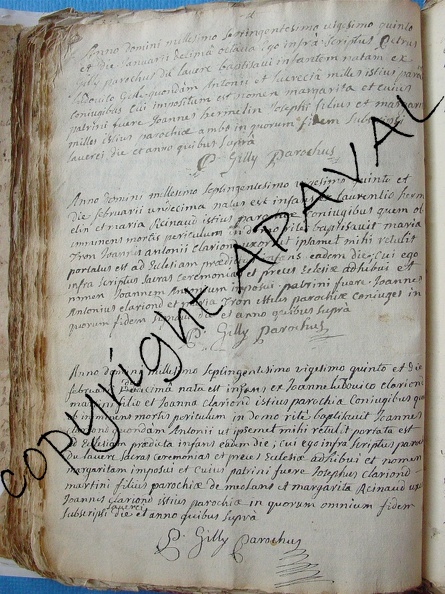 Anno domini millesimo septingentesimo vigesimo quinto
et die Januarii decima octava ego infra scriptus Petrus
Gilly parochus du lauzet baptisavi infantem natam ex
Ludovico Gilly quondam Antonii et lucretia milles istius paro
coniugibus cui impositum est nomen margarita et cuius
patrini fuere Joannes hermelin Josephi filius et margari
milles istius parochiæ ambo in quorum fidem subscripsi
lauzeti die et anno quibus supra
P. Gilly Parochus
Anno domini millesimo septingentesimo vigesimo quinto et
die februarii undecima natus est infans laurentio herm
elin et maria Reinaud istius parochiæ coniugibus quem ob
imminens mortis periculum in domo rite baptisavit maria
Tron Joannis Antonii clariond uxor ut ipsamet mihi retulit
portatus est ad Ecclesiam prædictus infans eadem die, cui ego
infra scriptus sacras ceremonias et preces Eclesiæ adhibui et
nomen Joannem Antonium imposui patrini fuere Joannes
Antonius clariond et maria Tron istius parochiæ coniuges in
quorum fidem die et anno quibus supra
P. Gilly parochus
Anno domini millesimo septingentesimo vigesimo quinto et die
februarii natta est infans ex Joanne ludovico clariond
martini filio et Joanna clariond istius parochiæ coniugibus qua
ob imminens mortis periculum in domo rite baptisavit Joannes
clariond quondam Antonii ut ipsemet mihi retulit portata est
ad Eclesiam prædicta infans eadem die; cui ego infra scriptus paroc
du lauzet sacras ceremonias et preces Eclesiæ adhibui et nomen
margaritam imposui et cuius patrini fuere Josephus clariond
martini filius parochiæ de meolans et margarita Reinaud ux
Joannis clariond istius parochiæ in quorum omnium fidem
subscripsi lauzeti die et anno quibus supra
P. Gilly Parochus
copyright APAVAL